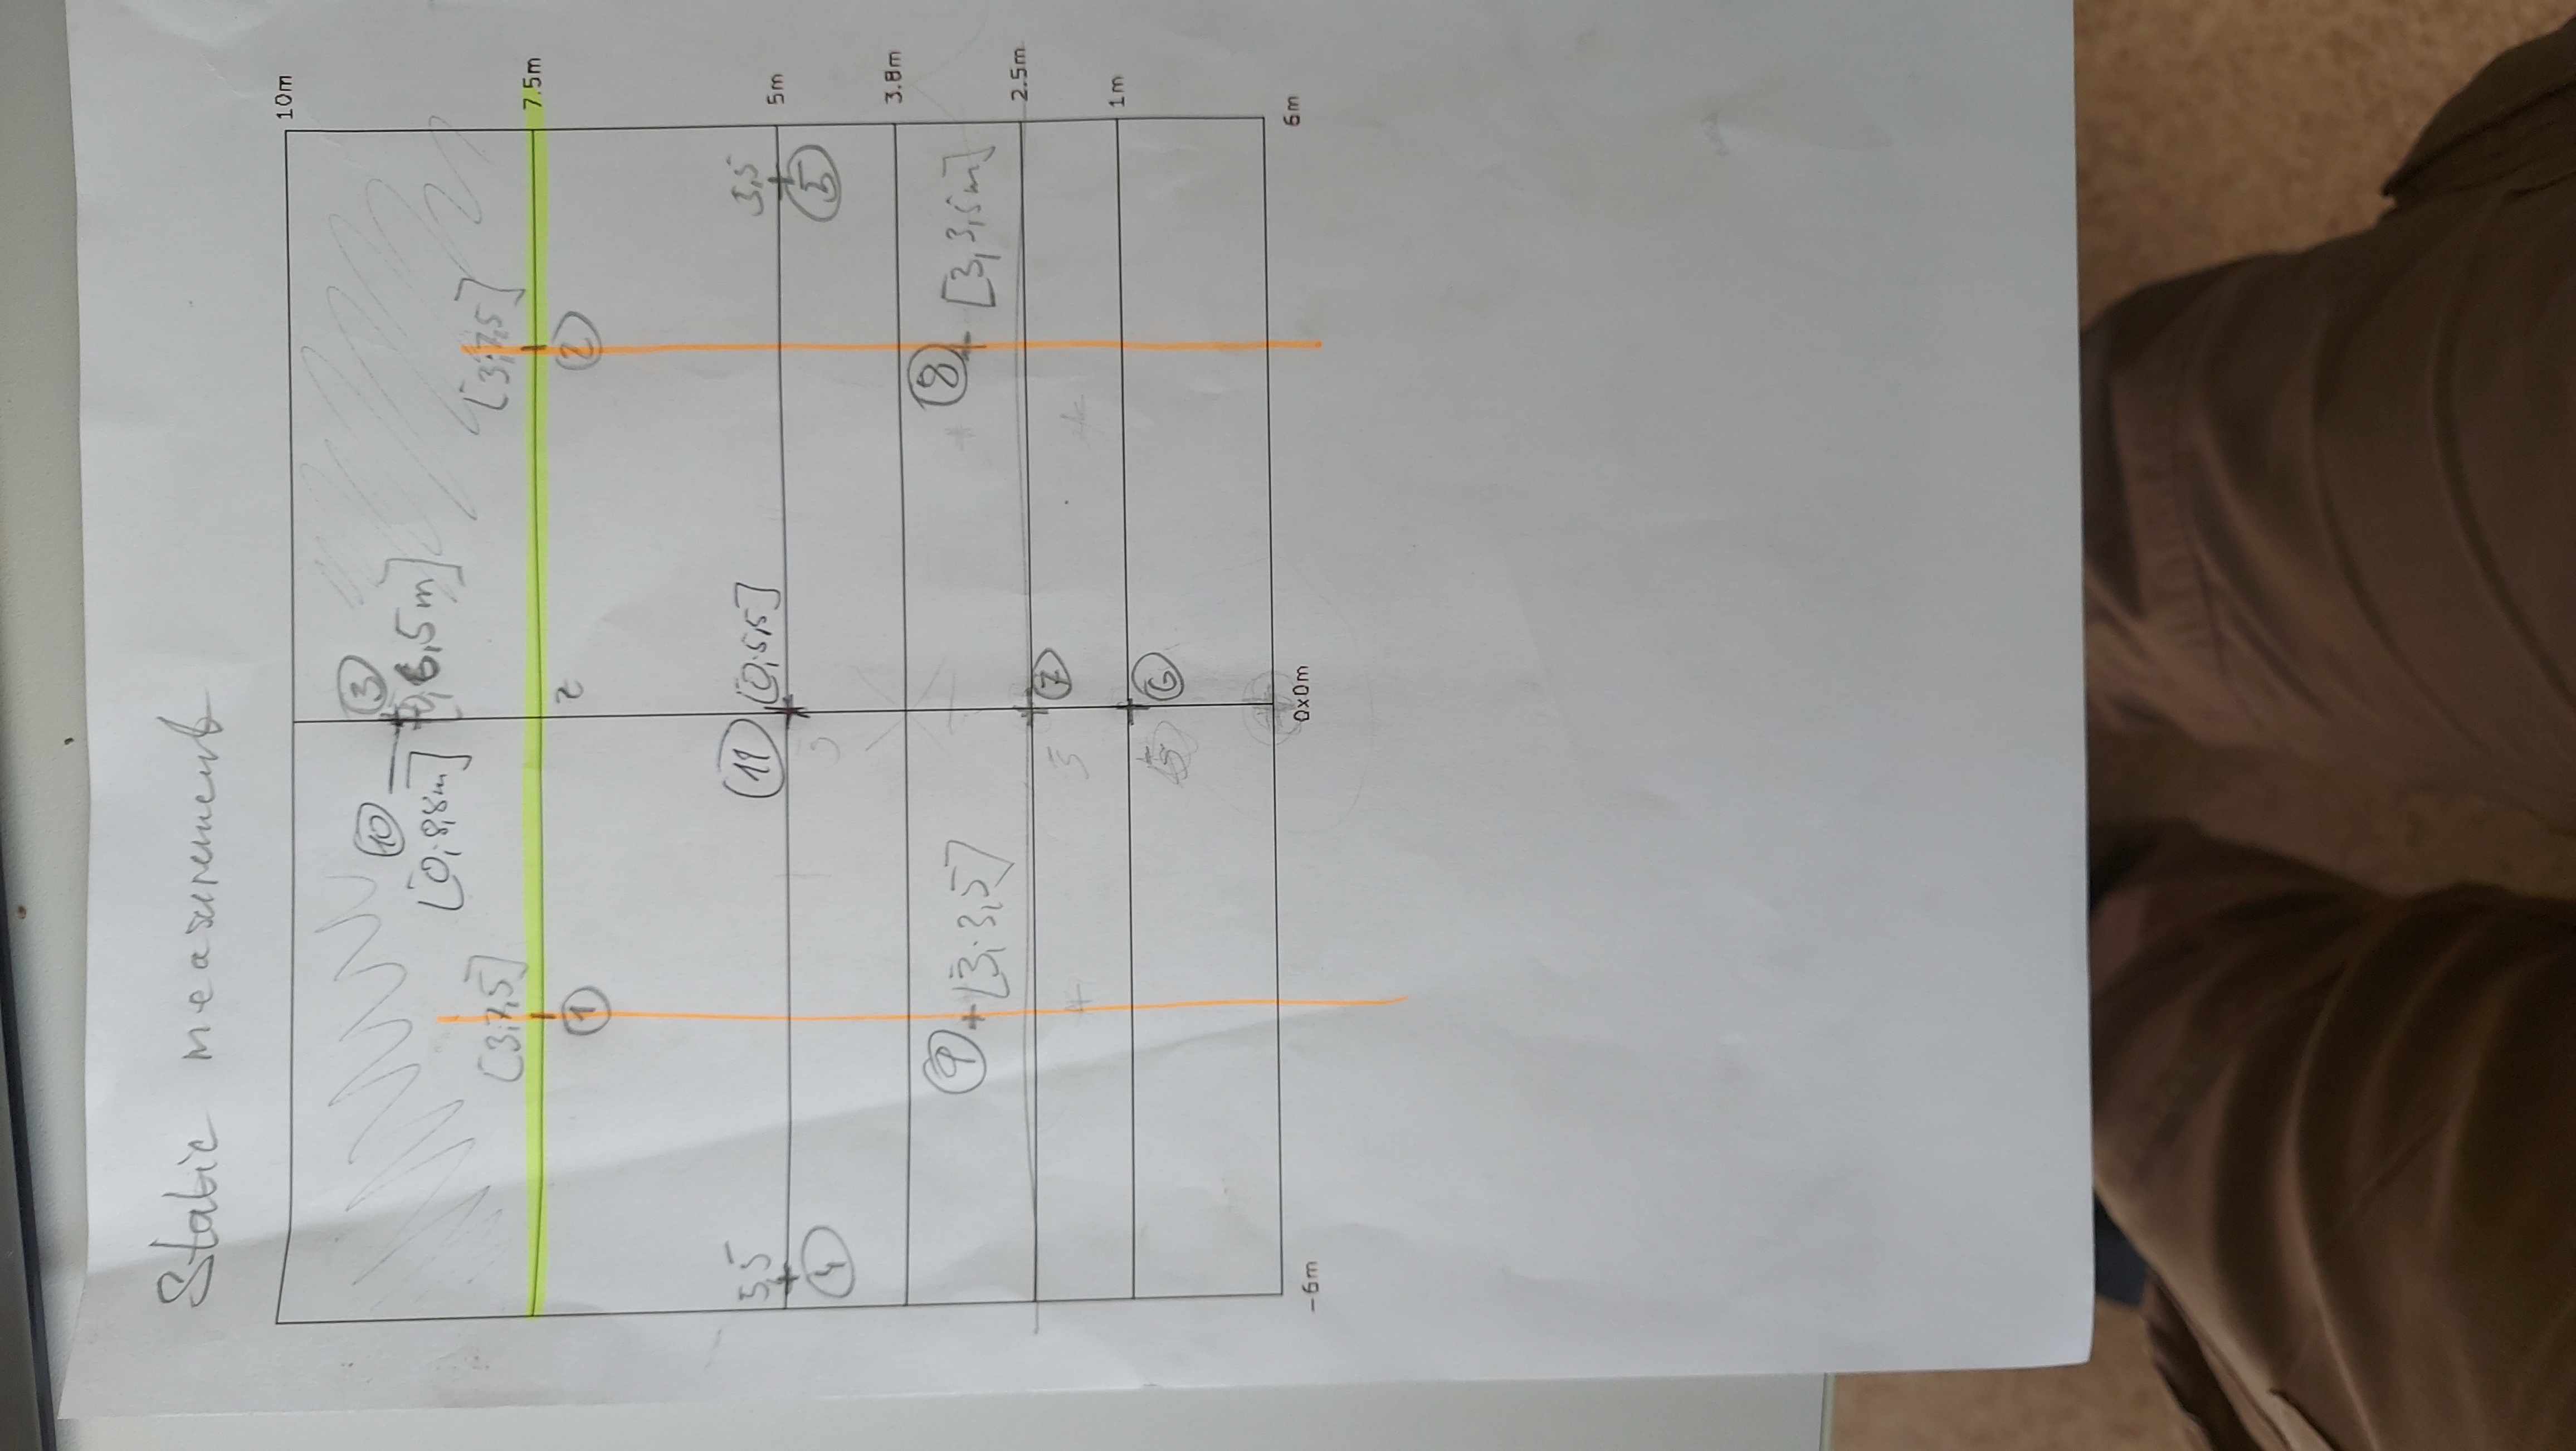 Static measurement
10m
3
10
[0;8,8m]
[0,6,5m]
[3;7,5]
[3;7,5]
7.5m
1
2
2
5,5
11
[0;5,5]
5,5
5m
4
5
3.8m
9
[3;3,5]
8
[3,3,5m]
2.5m
7
5
1m
6
-6m
0x0m
6m